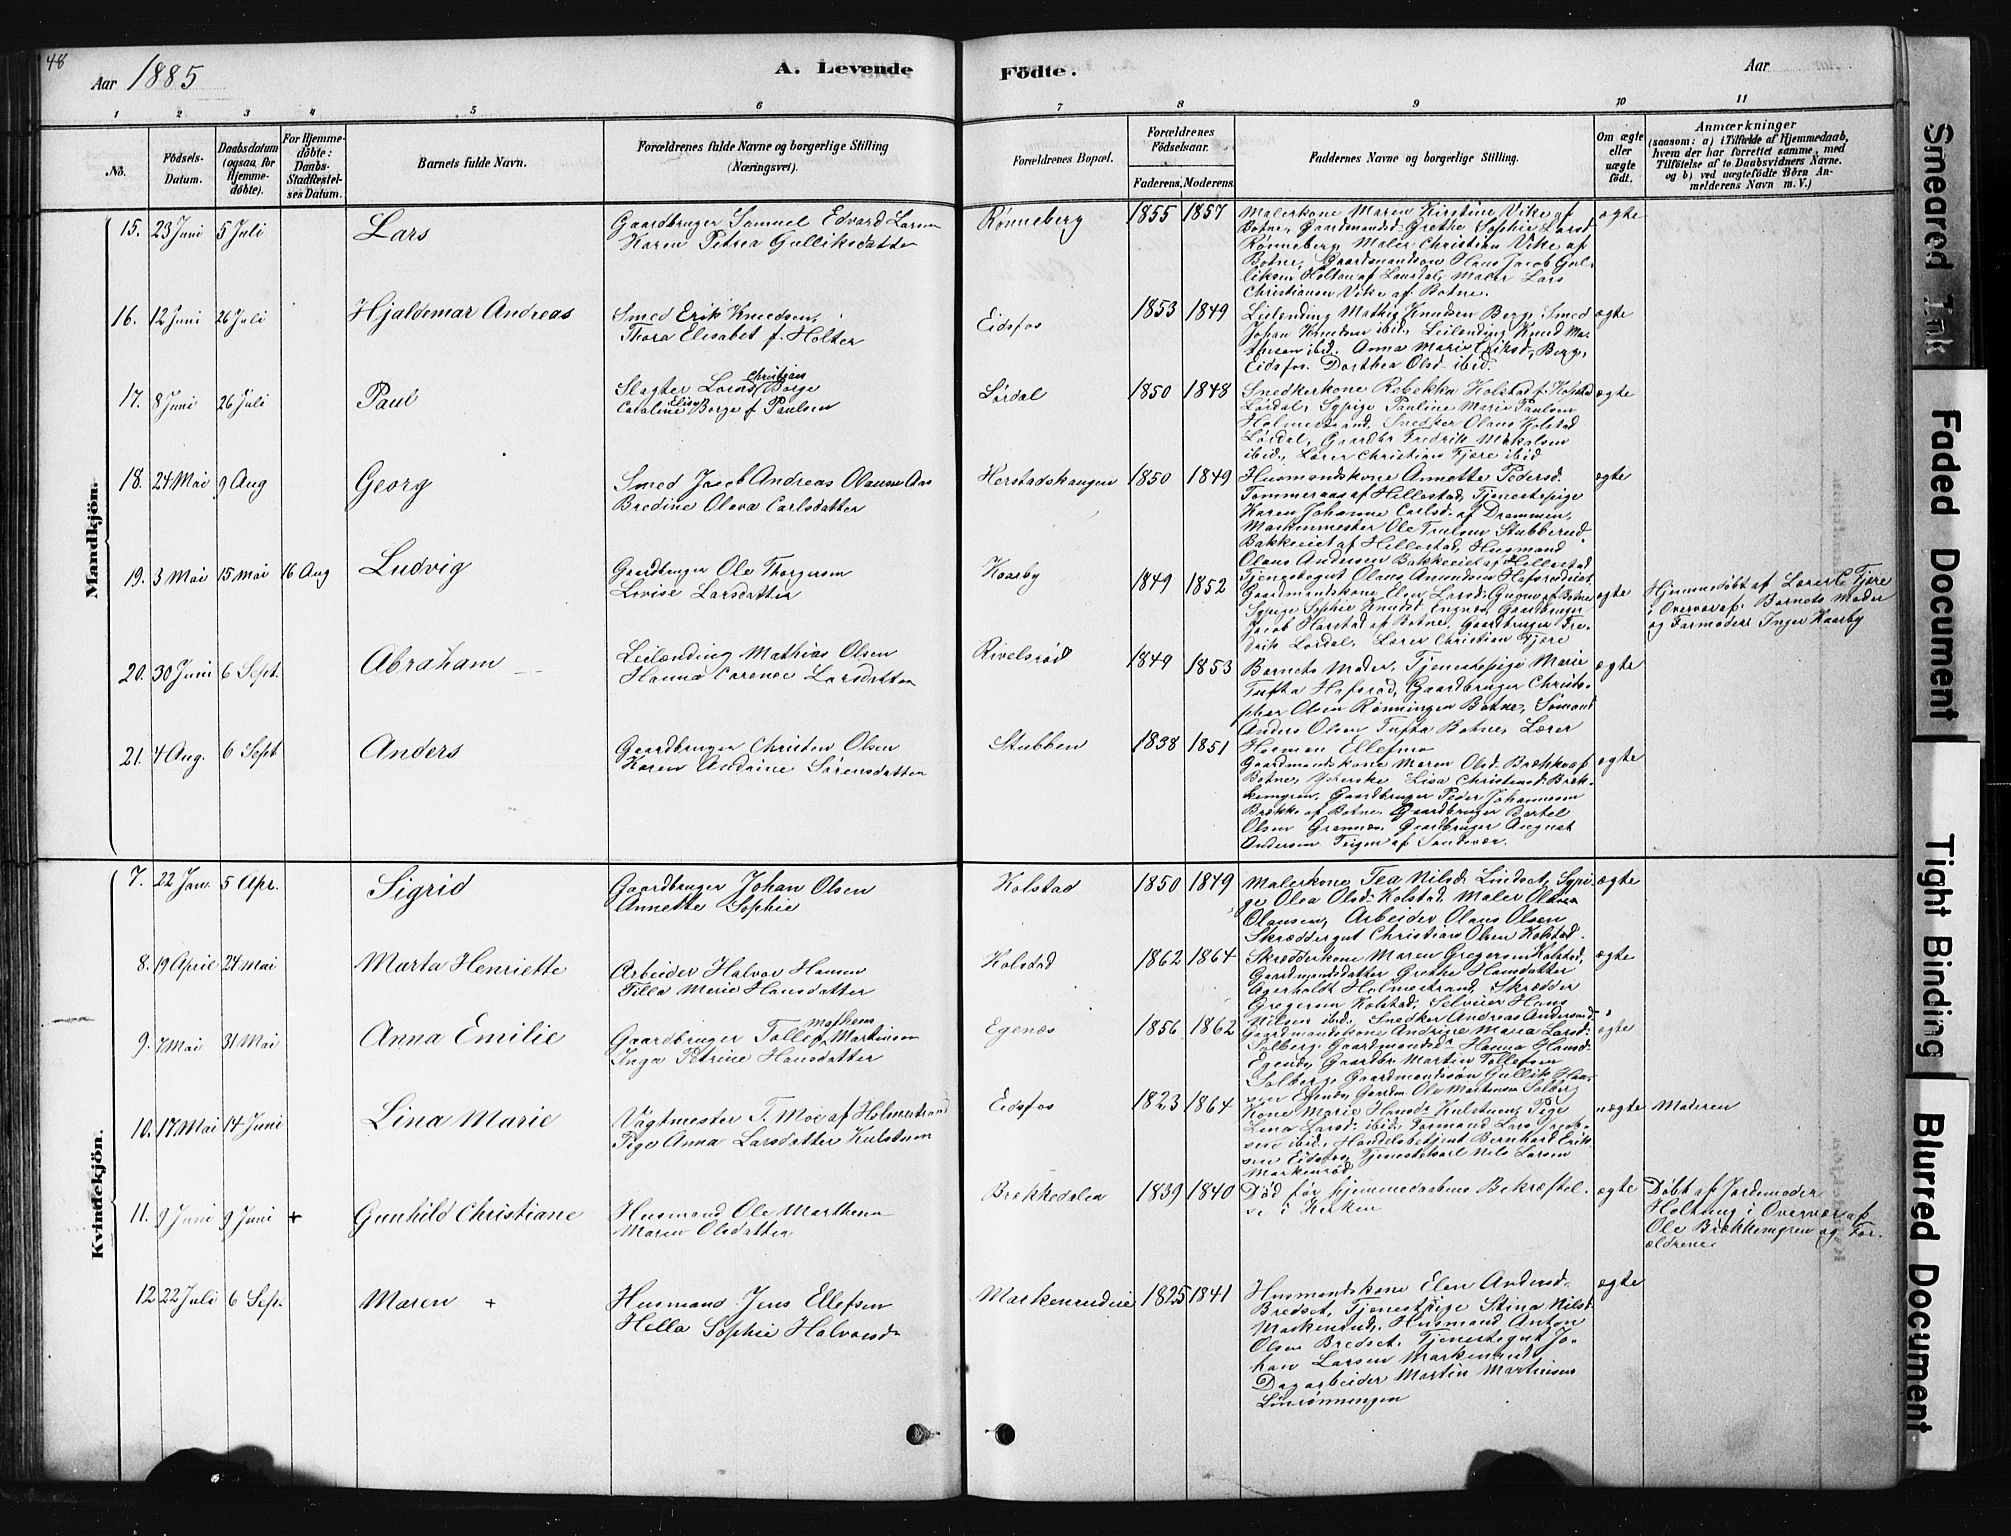 48
Aar 1885
A. Levende Födte.
Aar
1 2 3 4 5 6 7 8 9 10 11
No.
Födsels-Datum.
Daabsdatum (ogsaa, for Hjemme-döbte).
For Hjemme-döbte: Daabs-Stadfæstel-ses Datum.
Barnets fulde Navn.
Forældrenes fulde Navne og borgerlige Stilling (Næringsvei).
Forældrenes Bopæl.
Forældrenes Födselsaar.
Faderens. Moderens.
Faddernes Navne og borgerlige Stilling.
Om ægte eller uægte födt.
Anmærkninger
(saasom: a) i Tilfælde af Hjemmedaab, hvem der har forrettet samme, med Tilföielse af to Daabsvidners Navne, og b) ved uægtefödte Börn An-melderens Navn m. V.)
Mandkjön.
15. 23 Juni 5 Juli Lars
Gaardbruger Samuel Edvard Larsen
Karen Petrea Gulliksdatter
Rønneberg 1855 1857
Malerkone Maren Kirstine Vike af
Botne, Gaardmandsd. Grethe Sophie Larsd.
Rønneberg, Maler Christian Vike af
Botne, Gaardmandsøn Hans Jacob Gul-
liksen Holtan af Laurdal, Maler Lars
Christiansen Vike af Botne.
ægte
16. 12 Juni 26 Juli Hjaldemar Andreas
Smed Erik Knudsen,
Thora Elisabet f. Holter
Eidsfos 1853 1849
Leilending Mathis Knudsen Berg, Smed
Johan Knudsen ibid, Leilending Knud Ma-
thisen ibid. Anna Marie Eriksd. Berg,
Eidsfos. Dorthea Olsd. ibid.
ægte
17. 8 Juni 26 Juli Paul
Slagter Lorns Christian Borge
Caroline Elise Borge f. Paulsen
Lørdal 1850 1848
Snedkerkone Rebekka Kolstad f. Kolstad
Lørdal, Sypige Pauline Marie Paulsen
Holmestrand, Snedker Olaus Kolstad
Lørdal, Gaardbr. Fredrik Mikalsen
ibid., Lærer Christian Fjære ibid
ægte
18. 24 Mai 9 Aug Georg
Smed Jacob Andreas Olausen Aas
Bredine Olava Carlsdatter
Herstadshaugen 1850 1849
Husmandskone Annette Pedersd.
Tommeraas af Hillestad, Tjenestepige
Karen Johanne Carlsd. af Drammen,
Maskinmester Ole Trulsen Stubberud
Bakkeeiet af Hillestad, Husmand
Olaus Andersen Bakkeeiet af Hillestad
Tjenestegut Olaus Amundsen Hafsrødeiet
ægte
19. 3 Mai 15 Mai 16 Aug Ludvig
Gaardbruger Ole Thorgersen
Lovise Larsdatter
Haarby 1849 1852
Gaardmandskone Elen Larsd. Gunnes af Botne
Sypige Sophie Knudsd. Engnes, Gaardbruger
Jacob Harstad af Botne, Gaardbruger Fre-
drik Lørdal, Lærer Christian Fjære
ægte
Hjemmedöbt af Lærer C. Fjære
i Overvær af Barnets Moder
og Farmoder Inger Haarby
20. 30 Juni 6 Sept. Abraham
Leilænding Mathias Olsen
Hanna Carence Larsdatter
Rivelsrød 1849 1853
Barnets Moder, Tjenestepige Marie
Tufta Hafsrød, Gaardbruger Christo-
pher Olsen Rønningen Botne, Sømand
Anders Olsen Tufta Botne, Lærer
Herman Ellefsen
ægte
21. 4 Aug. 6 Sept Anders
Gaardbruger Christen Olsen
Karen Andrine Sørensdatter
Stubben 1838 1851
Gaardmandskone Maren Olsd. Brække af
Botne, Lisa Christensd. Bræk-
kemyren, Gaardbruger Peder Johannesen
Brække af Botne, Gaardbruger Bertel
Olsen Grønnes, Gaardbruger August
Andersen Teigen af Sandsvær.
ægte
Kvindekjön.
7. 22 Jan. 5 Apr. Sigrid
Gaardbruger Johan Olsen
Annette Sophie
Kolstad 1850 1849
Malerkone Tea Nilsd. Lindset, Sypi-
ge Olea Olsd. Kolstad, Maler
Olausen, Arbeider Olaus Olsen
Skræddergut Christian Olsen Kolstad.
ægte
8. 19 April 24 Mai Marta Henriette
Arbeider Halvor Hansen
Tilla Marie Hansdatter
Kolstad 1862 1864
Skrædderkone Maren Gregersen Kolstad,
Gaardmandsdatter Grethe Hansdatter
Agerholdt Holmestrand, Skrædder
Gregersen Kolstad, Selveier Hans
Nilsen ibid., Snedker Andreas Andersen
ægte
9. 7 Mai 31 Mai Anna Emilie
Gaardbruger Tollef Mathens Martinsen
Inga Petrine Hansdatter
Egenæs 1856 1862
Gaardmandskone Andrine Maria Larsd.
Solberg, Gaardmandsd. Hanna Hansd.
Egenes, Gaardbr. Martin Tollefsen
Solberg, Gaardmandssøn Gullik Han-
sen Egenes, Gaardm. Ole Martinsen Solberg
ægte
10. 17 Mai 14 Juni Lina Marie
Vagtmester T. Moe af Holmestrand
Pige Anna Larsdatter Kulstuen
Eidsfos 1823 1864
Kone Marie Hansd. Kulstuen, Pige
Lina Larsd. ibid, Formand Lars
sen ibid., Handelsbetjent Bernhard Erik-
sen Eidsfos, Tjenestekarl Nils Larsen
Markenrød
uægte Moderen
11. 9 Juni 9 Juni + Gunhild Christiane
Husmand Ole Marthens
Maren Olsdatter
Brækkedalen 1839 1840
Död før Hjemmedaabens Bekræftel-
se i Kirken
ægte
Döbt af Jordemoder
Holtung i Overvær af
Ole Brækkemyren og For-
ældrene
12 22 Juli 6 Sep. Maren +
Husmand Jens Ellefsen
Hella Sophie Halvorsd.
Markenrudeie 1825 1841
Husmandskone Elen Andersd.
Bredset, Tjenestpige Stina Nilsd.
Markenrud, Husmand Anton
Olsen Bredset, Tjenestegut Jo-
han Larsen Markenrud
Dagarbeider Martin Martinsen
Linrønningen
ægte
Smeared Ink
Faded Document
Tight Binding
Blurred Document